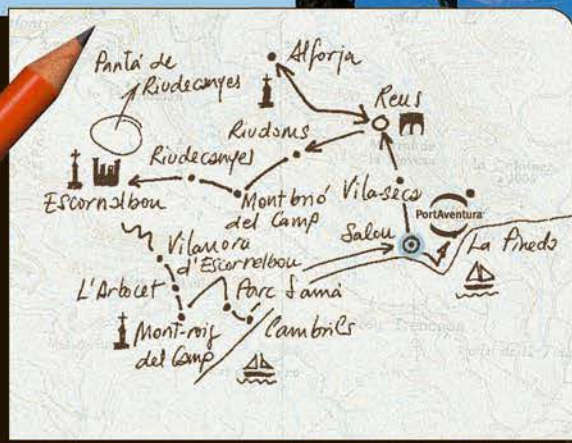 Pantá de
Riudecanyes
Alforja
Reus
Riudoms
Riudecanyes
Escornalbou
Montbrió
del Camp
Vila-seca
PortAventura
Salou
La Pineda
Vilanova
d'Escornalbou
L'Arbocet
Parc Samà
Mont-roig
del Camp
Cambrils